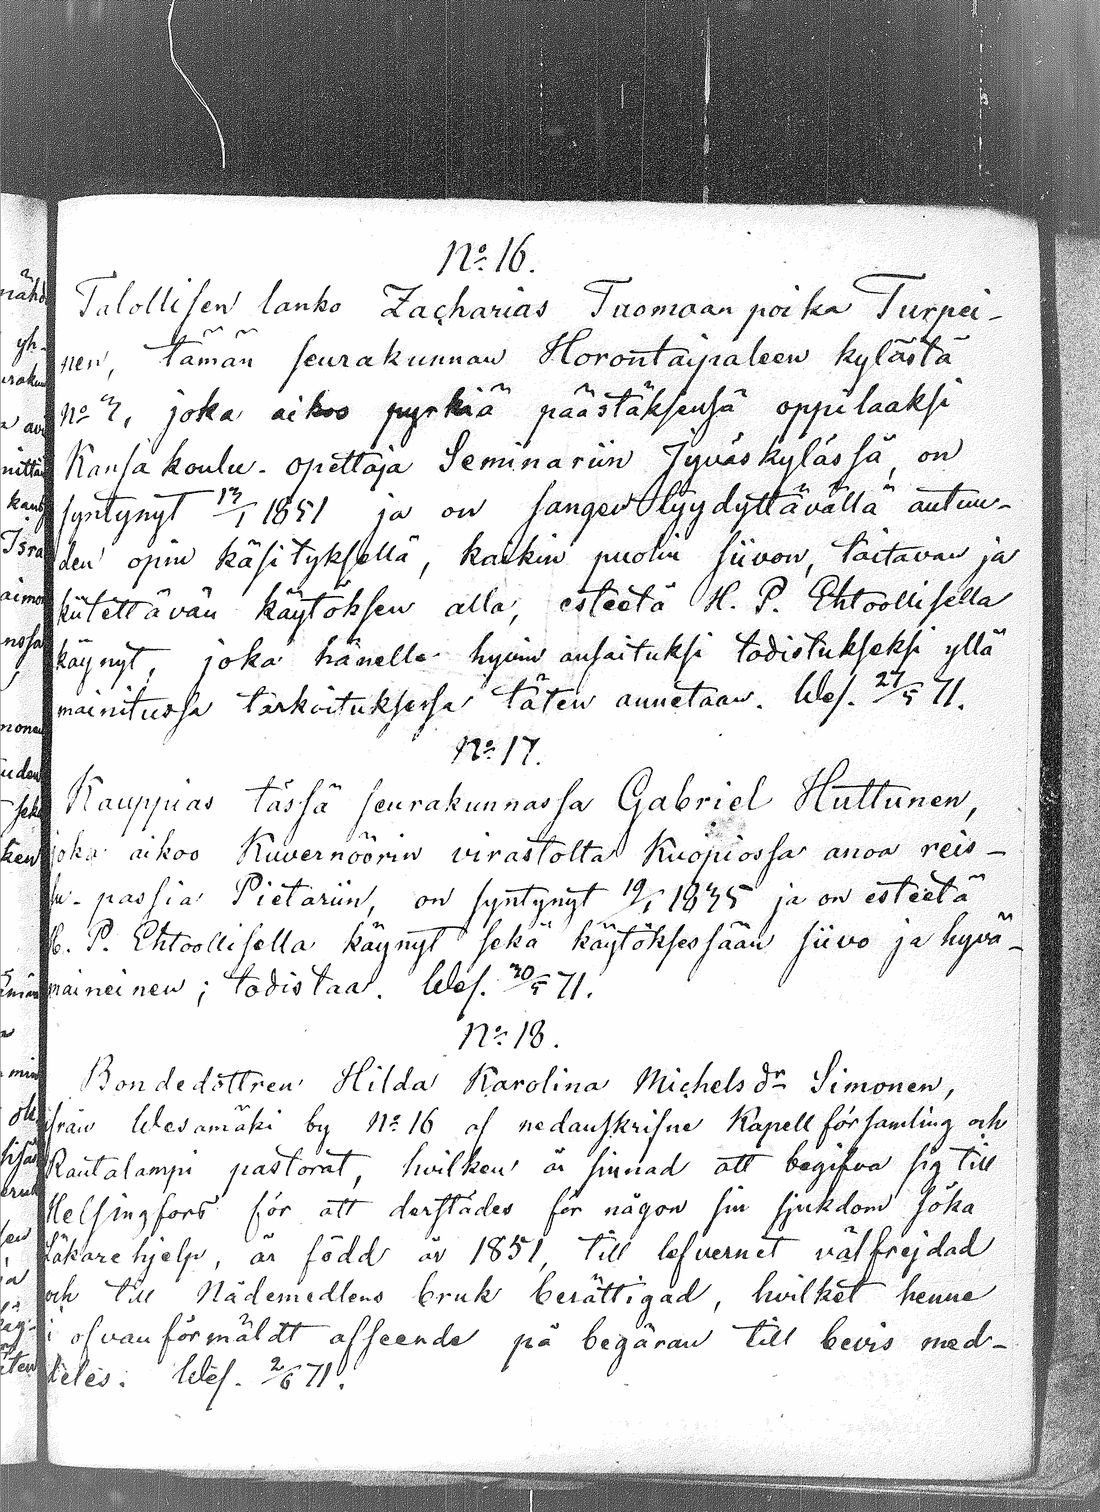 No 16.
Talollisen lanko Zacharias Tuomaanpoika Turpei-
nen, tämän seurakunnan Horontaipaleen kylästä
No 3, joka aikoo pyrkiä päästäksensä oppilaaksi
Kansakoulu-opettaja Seminariin Jyväskylässä, on
syntynyt 13/1 1851 ja on sangen tyydyttävällä autuu-
den opin käsityksellä, kaikin puolin siivon, taitavan ja
kiitettävän käytöksen alla, esteetä H. P. Ehtoollisella
käynyt, joka hänelle hyvin ansaituksi todistukseksi yllä
mainitussa tarkoituksessa täten annetaan. Wes. 27/5 71.
No 17.
Kauppias tässä seurakunnassa Gabriel Huttunen,
joka aikoo Kuvernöörin virastolta Kuopiossa anoa reis-
su-passia Pietariin, on syntynyt 19/1 1835 ja on esteetä
H. P. Ehtoollisella käynyt sekä käytöksessään siivo ja hyvä-
maineinen; todistaa. Wes. 30/5 71.
No 18.
Bondedottren Hilda Karolina Michelsdr Simonen,
från Wesamäki by No 16 af nedanskrifne Kapellförsamling och
Rautalampi pastorat, hvilken är sinnad att begifva sig till
Helsingfors för att derstädes för någon sin sjukdom söka
Läkarehjelp, är född år 1851, till lefvernet välfrejdad
och till Nådemedlens bruk berättigad, hvilket henne
i ofvanförmäldt afseende på begäran till bevis med-
deles. Wes. 2/6 71.